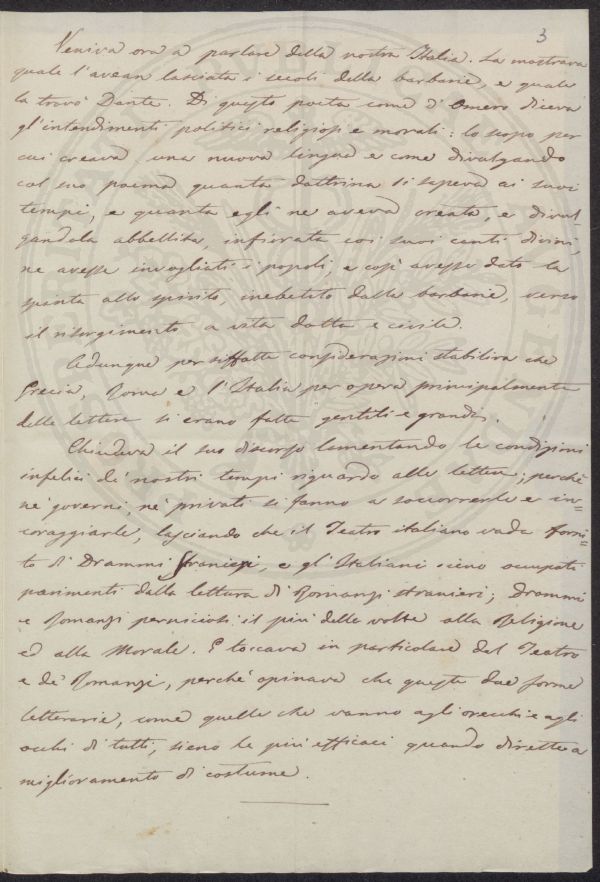 3
Veniva ora a parlare della nostra Italia. La mostrava
quale l'avean lasciata i secoli della barbarie, e quale
la trovò Dante. Di questo poeta come d'Omero diceva
gl'intendimenti politici religiosi e morali: lo scopo per
cui creava una nuova lingua e come divulgando
col suo poema quanta dottrina si sapeva ai suoi
tempi, e quanta egli ne aveva creata, e divul-
gandola abbellita, infiorata coi suoi canti divini,
ne avesse invogliati i popoli, e così avesse dato la
spinta allo spirito inebetito dalla barbarie, verso
il risorgimento a vita dotta e civile.
Adunque per siffatte considerazioni stabiliva che
Grecia, Roma e l'Italia per opera principalmente
delle lettere si erano fatte gentili e grandi.
Chiudeva il suo discorso lamentando le condizioni
infelici de' nostri tempi riguardo alle lettere; perchè
nè governi, nè privati si fanno a soccorrerle e in=
coraggiarle, lasciando che il Teatro italiano vada forni=
to di Drammi stranieri, e gl'Italiani sieno occupati
parimenti dalla lettura di Romanzi stranieri; Drammi
e Romanzi perniciosi il più delle volte alla Religione
ed alla Morale. E toccava in particolare del Teatro
e de' Romanzi, perchè opinava che queste due forme
letterarie, come quelle che vanno agli orecchi e agli
occhi di tutti, sieno le più efficaci quando dirette a
miglioramento di costume.